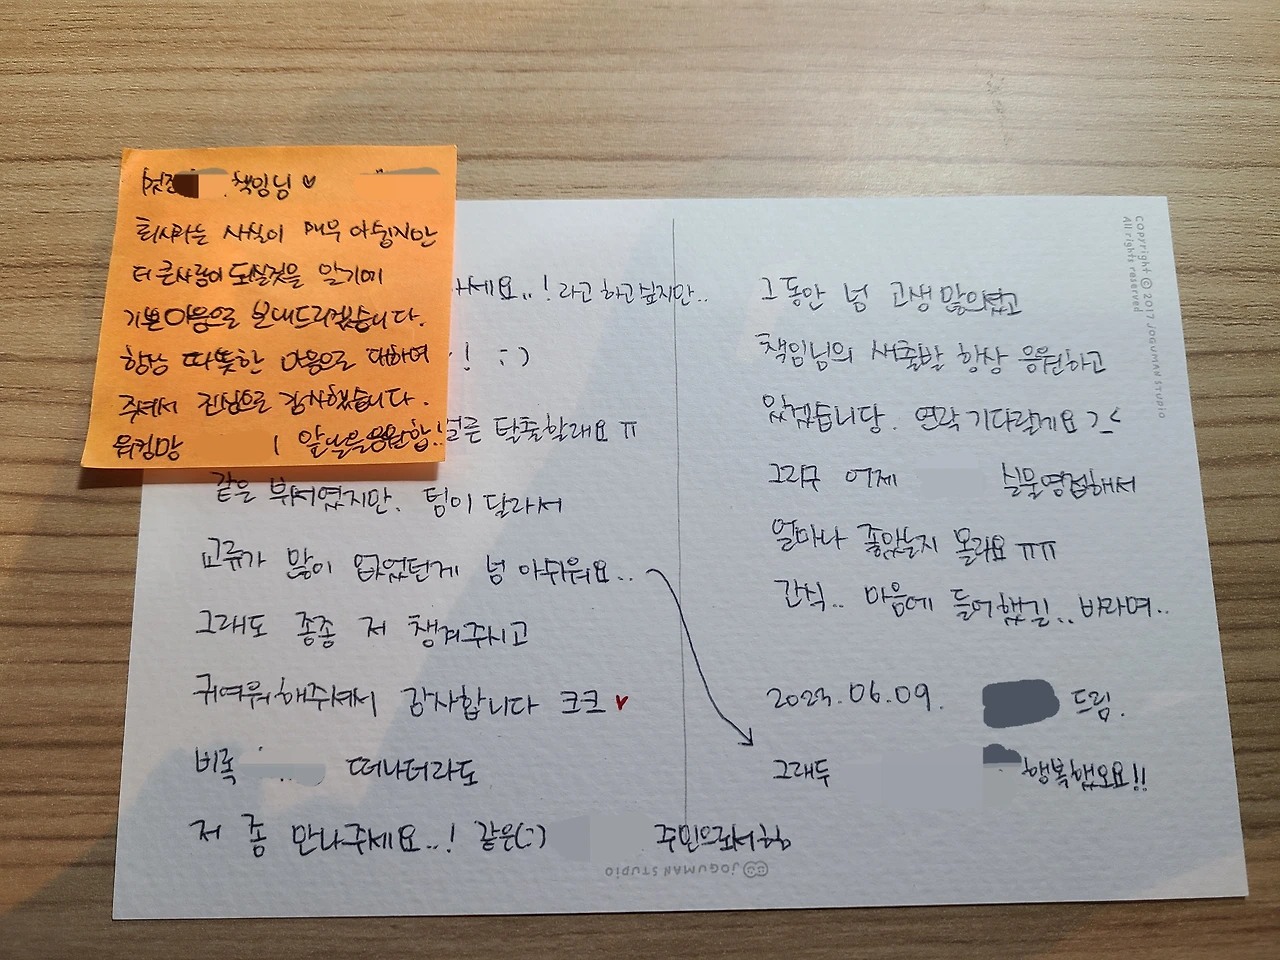 책임님 ♡
퇴사라는 사실이 매우 아쉽지만
더 큰사람이 도실것을 알기에
기쁜마음으로 보내드리겠습니다.
항상 따뜻한 마음으로 대하여
주셔서 진심으로 감사했습니다.
워킹맘 앞날을응원함!!
마세요..! 라고 하고싶지만..
! :)
얼른 탈출할래요 ㅠ
같은 부서였지만. 팀이 달라서
교류가 많이 없었던게 넘 아쉬워요..
그래도 종종 저 챙겨주시고
귀여워해주셔서 감사합니다 크크 ♥
비록 떠나더라도
저 좀 만나주세요..! 같은(:) 주민으로서항
그동안 넘 고생 많으셨고
책임님의 새출발 항상 응원하고
있겠습니당. 연락 기다릴게요 ㄱㄴ
그리구 어제 실물영접해서
얼마나 좋았는지 몰라요 ㅠㅠ
간식.. 마음에 들어했길.. 바라며..
2023.06.09. 드림.
그래두 행복했오요!!
Copyright ⓒ 2017 JOGUMAN STUDIO
All rights reserved
JOGUMAN STUDIO